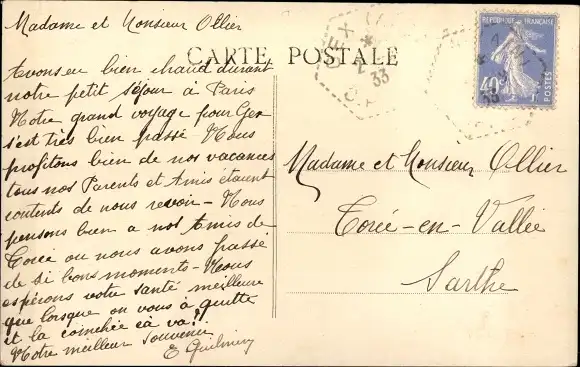 Madame et Monsieur Ollier
CARTE POSTALE
Avons eu bien chaud durant
notre petit séjour à Paris
Notre grand voyage pour Gex
s'est très bien passé Nous
profitons bien de nos vacances
tous nos Parents et Amis étaient
contents de nous revoir - Nous
pensons bien a nos Amis de
Torcé ou nous avons passé
de si bons moments - Nous
espérons votre santé meilleure
que lorsque on vous à quitté
et la çà va?
Notre meilleur souvenir
E
Madame et Monsieur Ollier
Torcé-en-Vallée
Sarthe
RÉPUBLIQUE FRANÇAISE
40c
POSTES
GEX
33